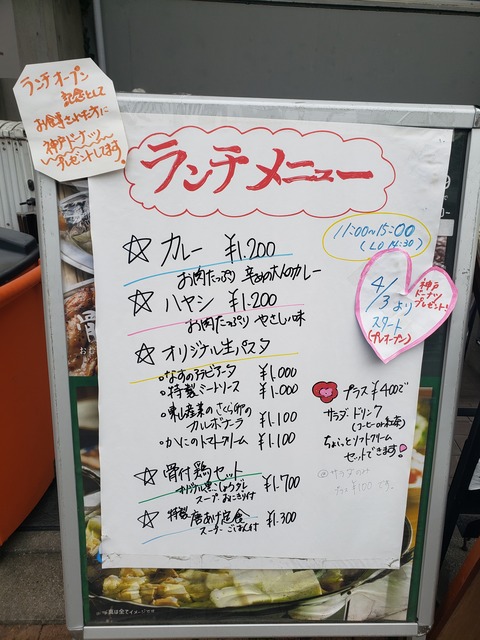 ランチオープン
記念として
お食事された方に
神戸ドーナツ
プレゼントします。
ランチメニュー
11:00〜15:00
(LO 14:30)
☆ カレー ¥1.200
お肉たっぷり 辛めの大人のカレー
☆ ハヤシ ¥1.200
お肉たっぷり やさしい味
4/3より
スタート
(プレオープン)
神戸
ドーナツ
プレゼント!
☆ オリジナル生パスタ
・なすのアラビアータ ¥1.000
・特製ミートソース ¥1.000
・東北産業のさくら卵の
カルボナーラ ¥1.100
・かにのトマトクリーム ¥1.100
プラス ¥400で
サラダ・ドリンク
(コーヒーor紅茶)
ちょこっとソフトクリーム
セットできます!
@サラダのみ
プラス ¥100です。
☆ 骨付鶏セット ¥1.700
オリジナル黒こしょうダレ
スープ おにぎり付
☆ 特製 唐あげ定食 ¥1.300
スープ ごはん付
写真は全てイメージです